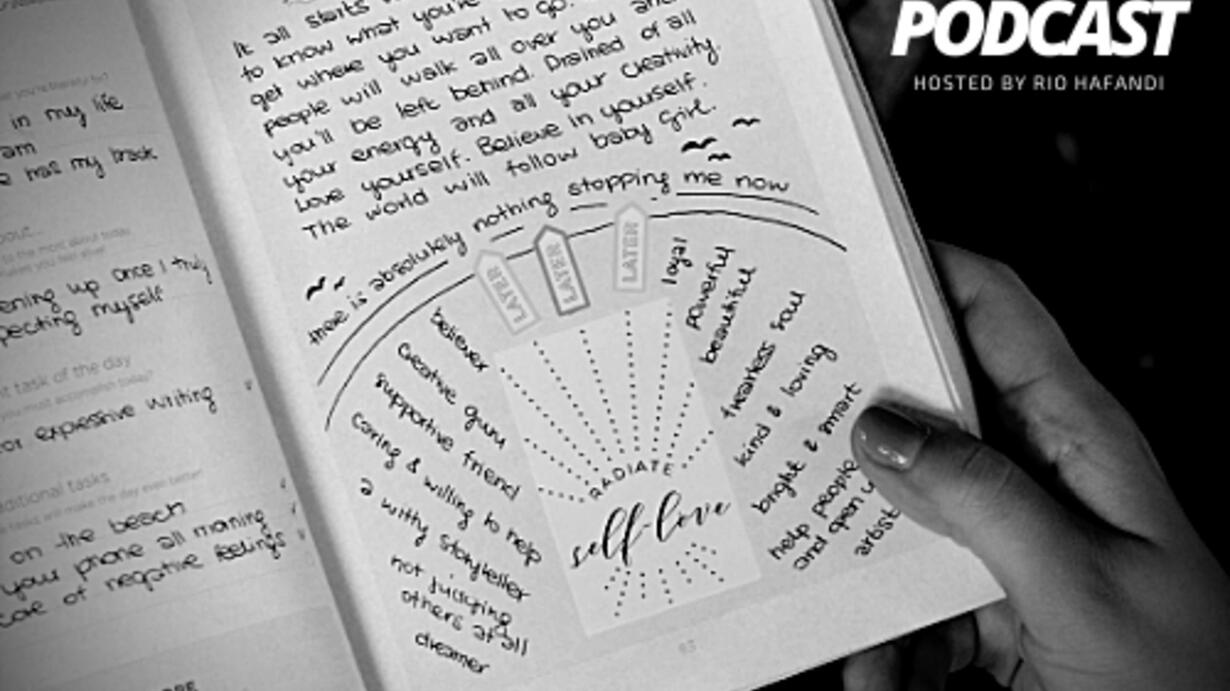 PODCAST
HOSTED BY RIO HAFANDI
in my life
am
has my back
about...
to the most about today
makes you feel alive
ening up once I truly
pecting myself
nt task of the day
you must accomplish today?
or expressive writing
additional tasks
tasks will make the day even better!
on the beach
your phone all morning
care of negative feelings
It all starts
to know what you're
get where you want to go.
people will walk all over you and
you'll be left behind. Drained of all
your energy and all your creativity.
Love yourself. Believe in yourself.
The world will follow baby girl.
there is absolutely nothing stopping me now
LATER
LATER
LATER
believer
creative guru
supportive friend
caring & willing to help
a witty storyteller
not judging
others at all
dreamer
loyal
powerful
beautiful
fearless soul
kind & loving
bright & smart
help people
and open u
artist
RADIATE
self-love
63